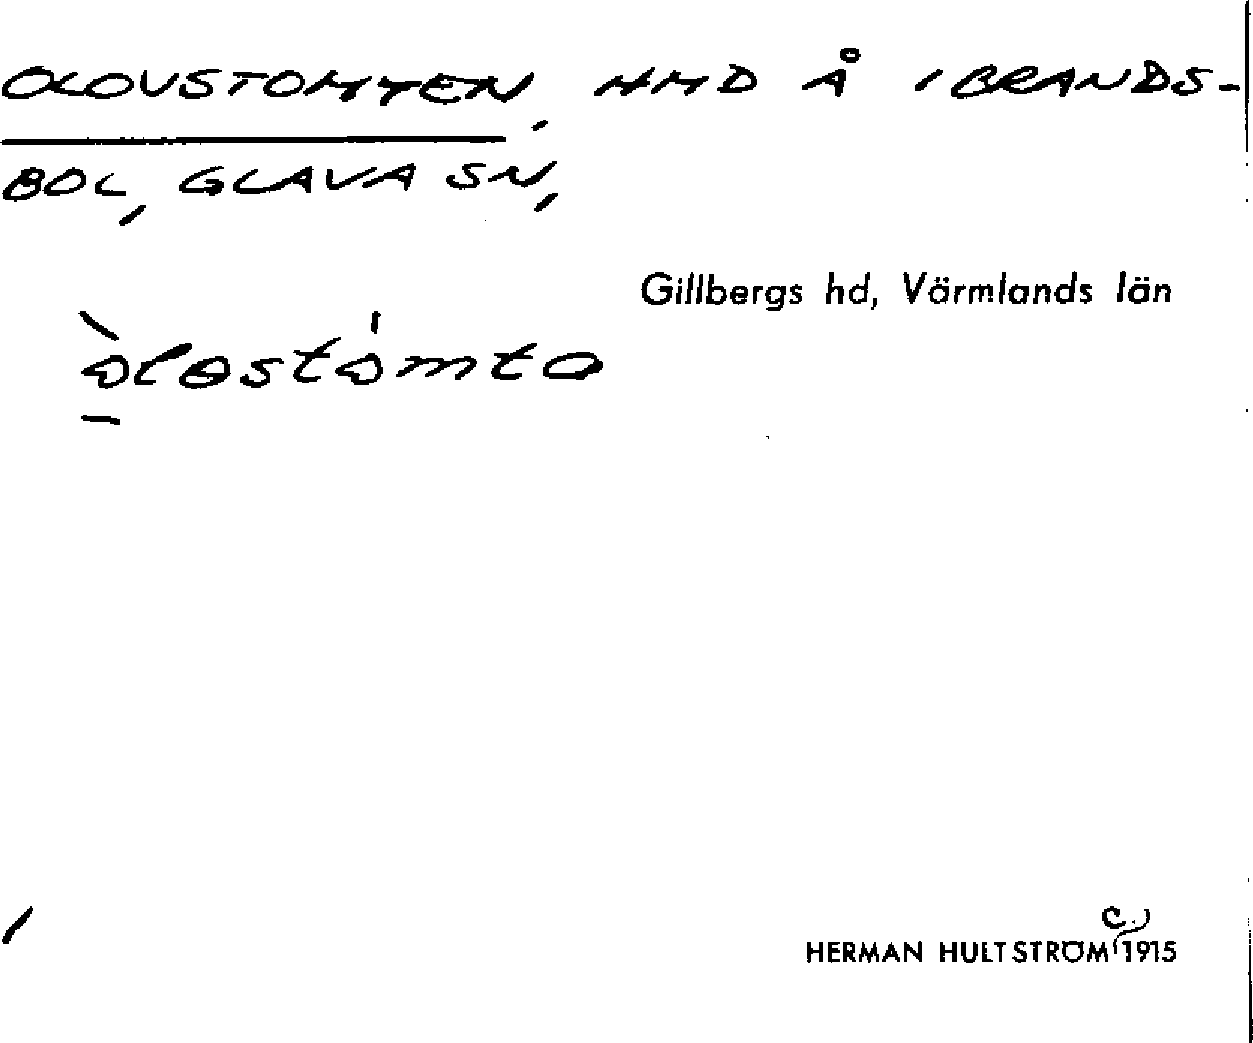 OLOVSTOMTEN, HMD Å 1 BRANDS-
BOL, GLAVA SN,
Gillbergs hd, Värmlands län
òlɵstómta
c.)
HERMAN HULTSTRÖM 1915